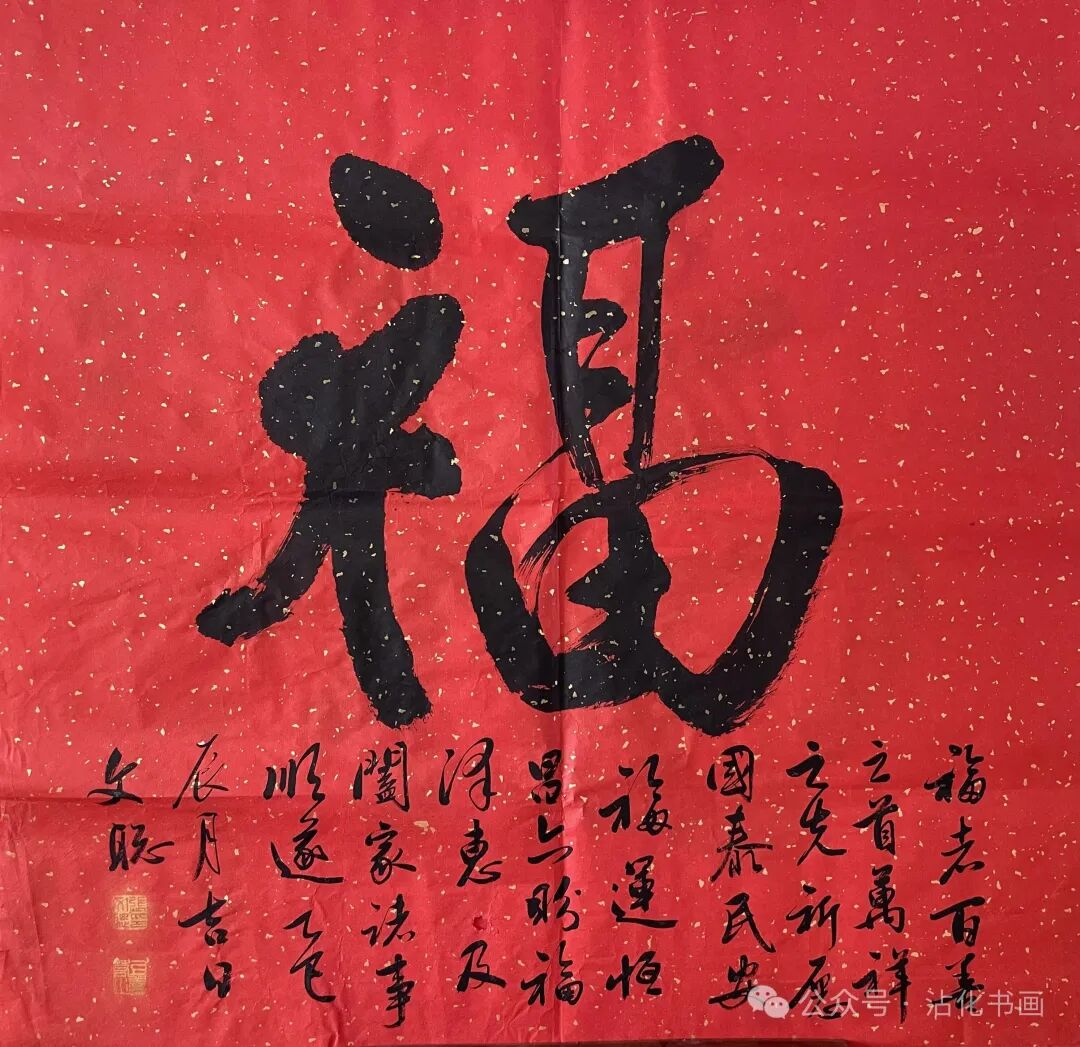 福
福者百美
之首萬祥
之先祈愿
國泰民安
福運恒
昌亦盼福
泽惠及
闔家诸事
順遂乙巳
辰月吉日
文聪
公众号·沾化书画